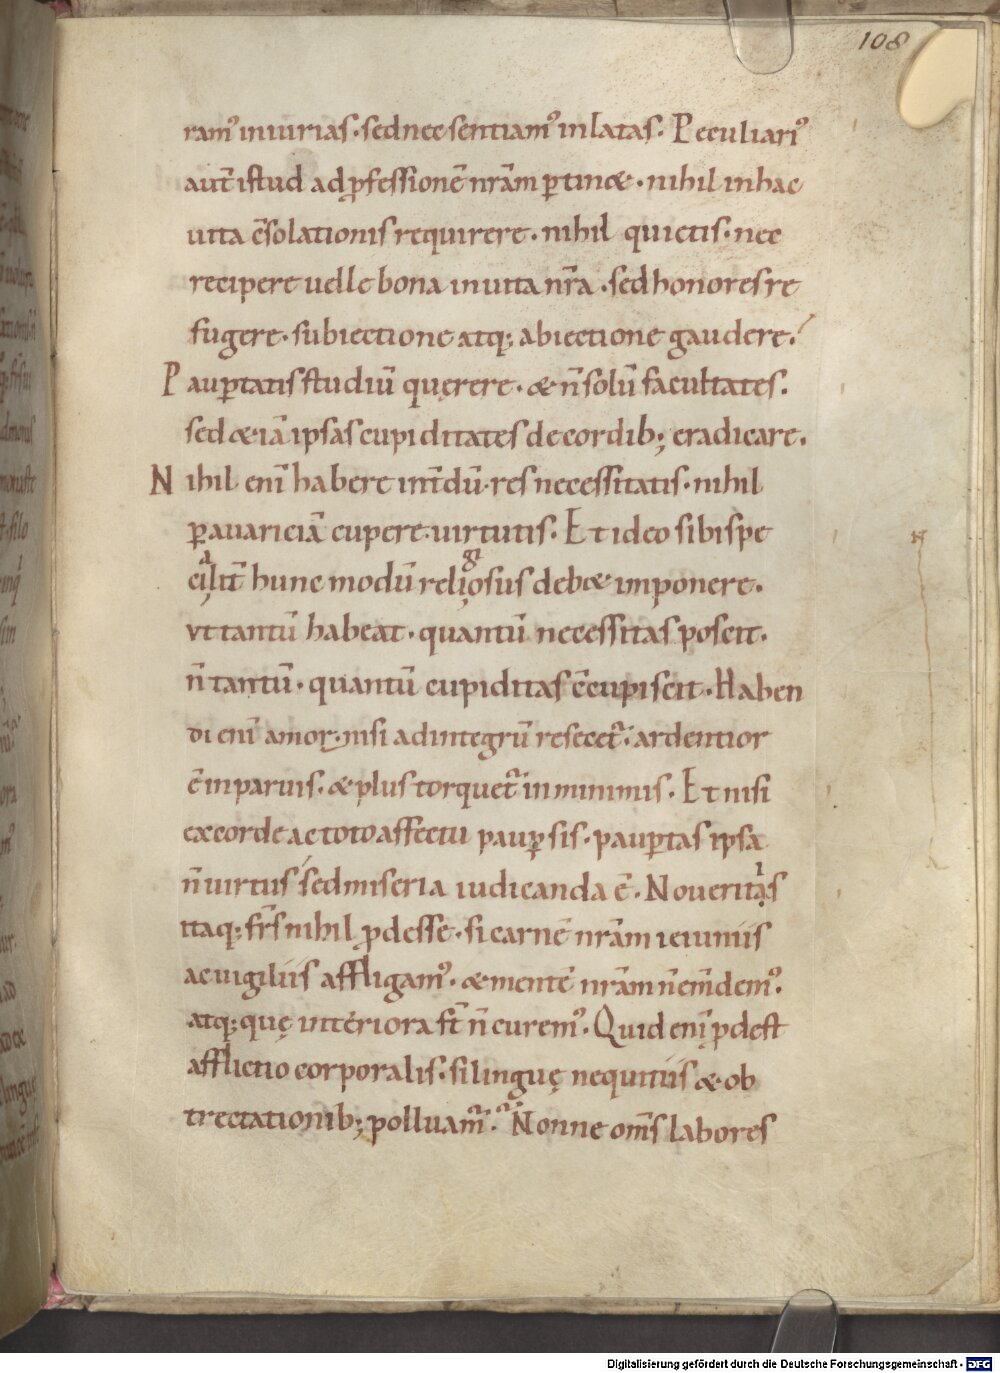 108
ram᷒ iniurias · sed nec sentiam᷒ inlatas · Peculiari᷒
aut̄ istud ad ꝓfessionē nr̄am ꝑtin& · nihil in hac
uita c̄solationis requirere · nihil quietis · nec
recipere uelle bona in uita nr̄a · sed honores re
fugere · subiectione atq; abiectione gaudere ·
Pauꝑtatis studiū quęrere · & n̄ solū facultates ·
sed & iā ipsas cupiditates de cordib; eradicare ·
Nihil eni̅ habere int̄dū · res necessitatis · nihil
ꝑ auariciā cupere · uirtutis · Et ideo sibi spe
cilit̄ hunc modū religiosus deb& imponere ·
vt tantū habeat · quantū necessitas poscit ·
n̄ tantū · quantū cupiditas c̄cupiscit · Haben
di eni̅ amor · nisi ad integrū resecet᷑ · ardentior
ē in paruis · & plus torquet᷑ in minimis · Et nisi
ex corde ac toto affectu pauꝑ sis · pauꝑtas ipsa
n̄ uirtus sed miseria iudicanda ē · Nouerit̾is
itaq; fr̄s nihil ꝓdesse · si carnē nr̄am ieiuniis
ac uigiliis affligam᷒ · & mentē nr̄am n̄ em̄dem᷒ ·
atq; quę interiora st̄ n̄ curem᷒ · Quid eni̅ ꝓdest
afflictio corporalis · si linguę nequitiis & ob
trectationib; polluam᷑ · Nonne om̄s labores
Digitalisierung gefördert durch die Deutsche Forschungsgemeinschaft - DFG